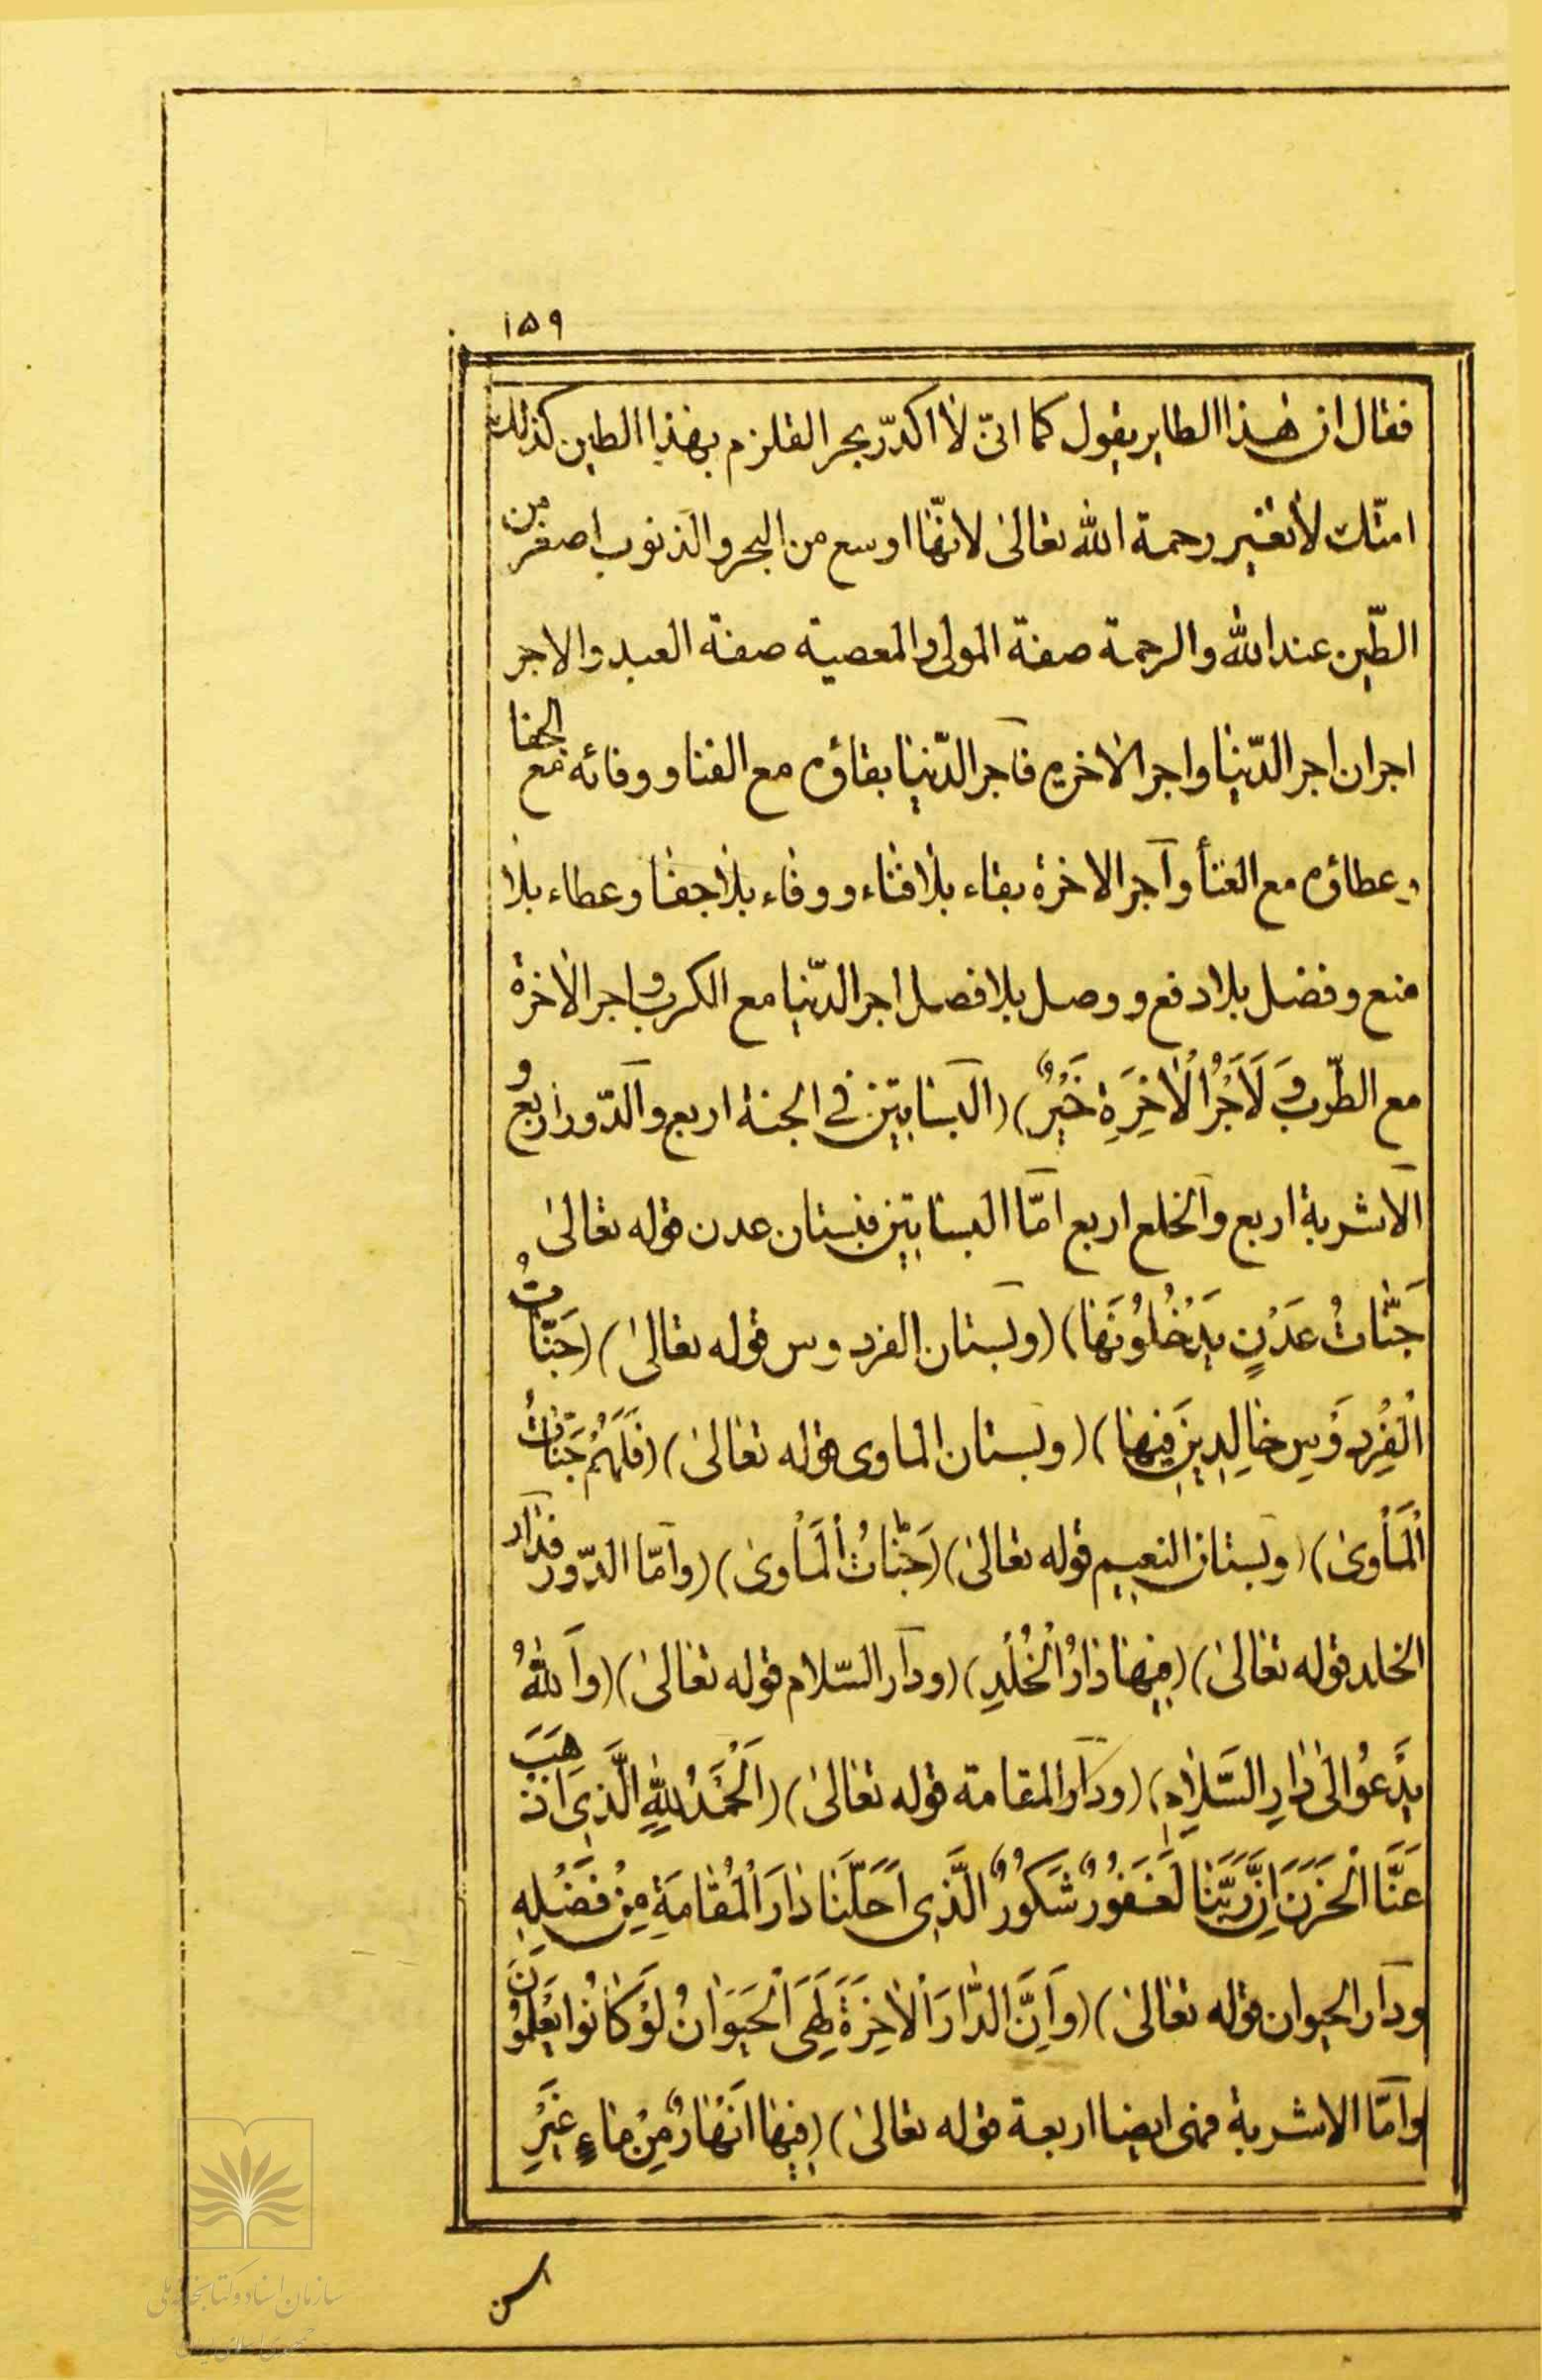 ١٥٩
فقال ان هذا الطاير يقول كما انّى لا اكدّر بحر القلزم بهذا الطين كذلك
امتّك لا تغير رحمة الله تعالى لانّها اوسع من البحر والذنوب اصغر من
الطّين عند الله والرحمة صفة المولى والمعصية صفة العبد والاجر
اجران اجر الدّنيا واجر الاخره فاجر الدّنيا بقاؤه مع الفنا ووفائه مع الجفا
وعطاؤه مع العنا واجر الاخرة بقاء بلا فناء ووفاء بلا جفا وعطاء بلا
منع وفضل بلا دفع ووصل بلا فصل اجر الدّنيا مع الكرب واجر الاخرة
مع الطّرب وَلَاَجْرُ الْاٰخِرَةِ خَيْرٌ) (البساتين فى الجنة اربع والدّور اربع و
الاشربة اربع والخلع اربع امّا البساتين فبستان عدن قوله تعالى
جَنّاتُ عَدْنٍ يَدْخُلُونَها) (وبستان الفردوس قوله تعالى) (جَنّاتُ
الْفِرْدَوْسِ خالِدِينَ فِيها) (وبستان الماوى قوله تعالى) (فَلَهُمْ جَنّاتُ
الْمَأْوى) (وبستان النعيم قوله تعالى) (جَنّاتُ الْمَأْوى) (وامّا الدّور فدار
الخلد قوله تعالى) (فِيها دارُ الْخُلْدِ) (ودار السّلام قوله تعالى) (وَاللهُ
يَدْعُوا اِلى دارِ السَّلامِ) (ودار المقامة قوله تعالى) (اَلْحَمْدُ لِلّهِ الَّذِى اَذْهَبَ
عَنَّا الْحَزَنَ اِنَّ رَبَّنا لَغَفُورٌ شَكُورٌ الَّذِى اَحَلَّنا دارَ الْمُقامَةِ مِنْ فَضْلِهِ
ودار الحيوان قوله تعالى) (وَاِنَّ الدّارَ الْاٰخِرَةَ لَهِىَ الْحَيَوانُ لَوْ كانُوا يَعْلَمُونَ
وامّا الاشربة فهى ايضا اربعة قوله تعالى) (فِيها اَنْهارٌ مِنْ ماءٍ غَيْرِ
اسن
سازمان اسناد و کتابخانه ملی
جمهوری اسلامی ایران